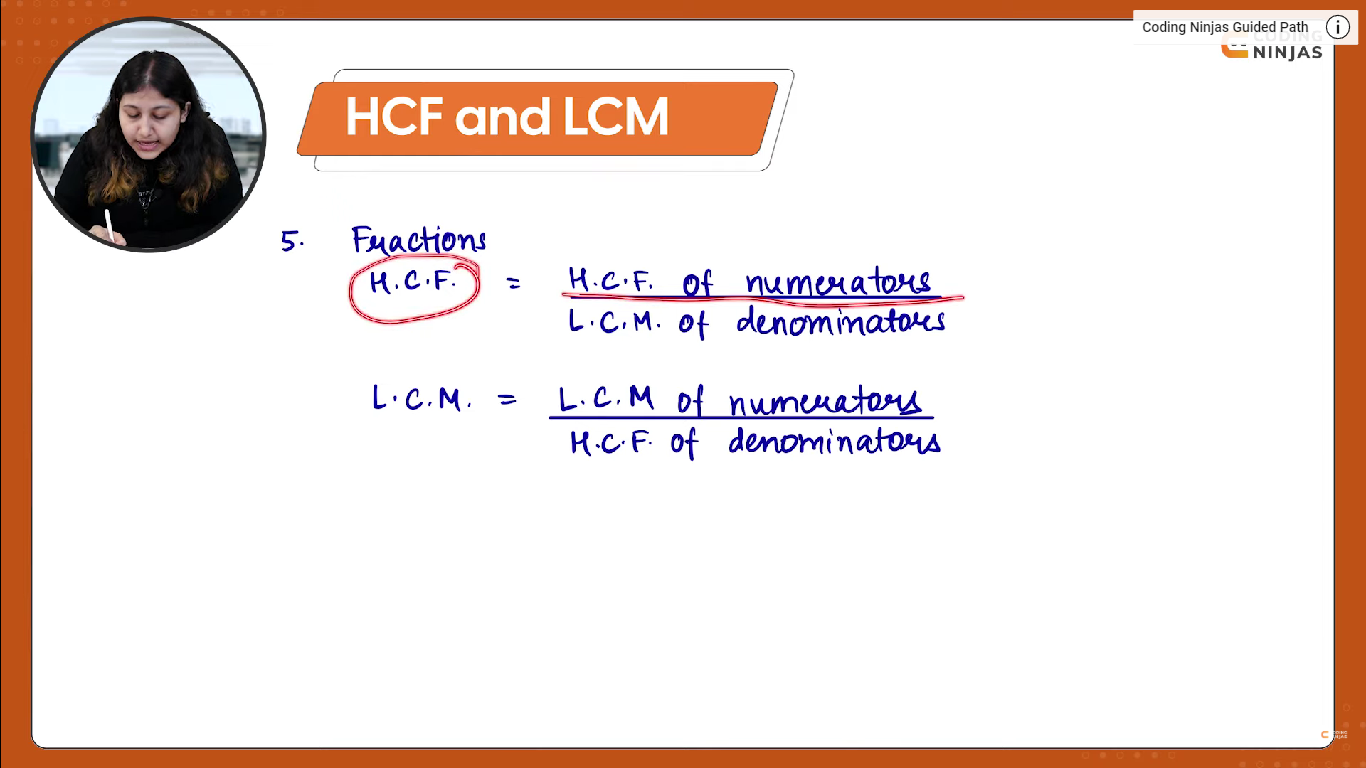 Coding Ninjas Guided Path
CODING
NINJAS
HCF and LCM
5. Fractions
H.C.F. = H.C.F. of numerators
L.C.M. of denominators
L.C.M. = L.C.M of numerators
H.C.F. of denominators